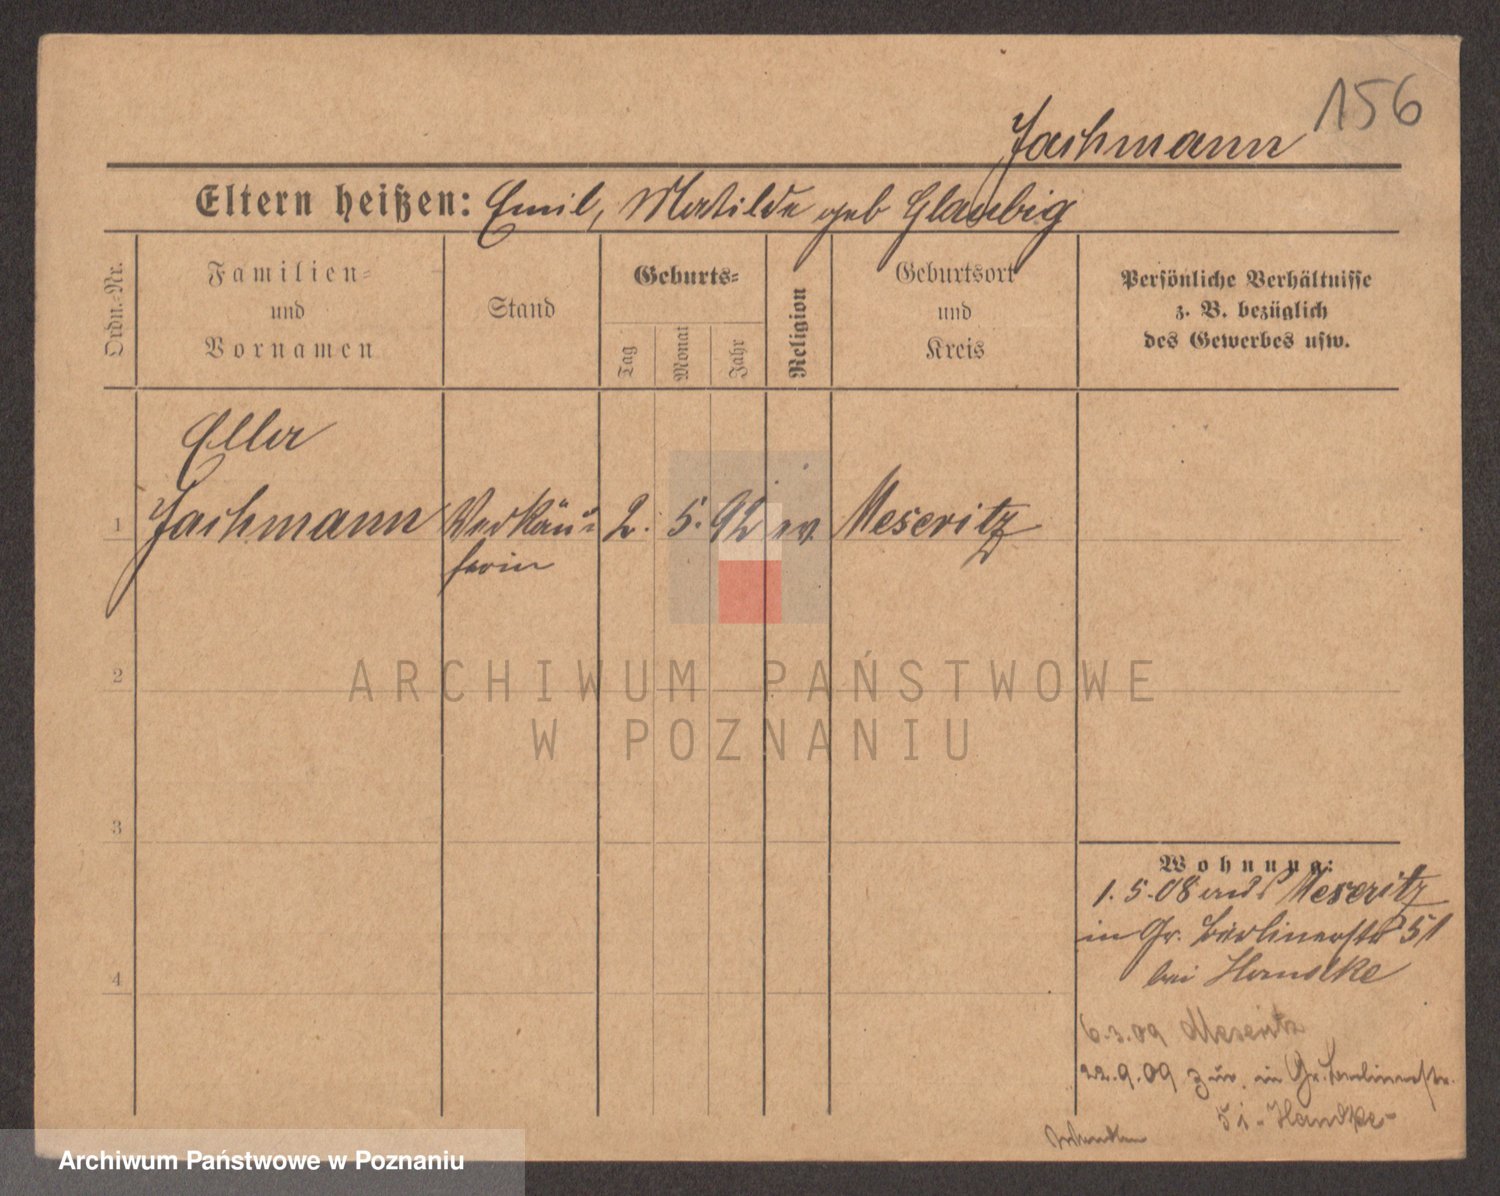 156
Jachmann
Eltern heißen: Emil, Matilde geb Glaubig
Ordn.-Nr.
Familien-
und
Vornamen
Stand
Geburts-
Tag
Monat
Jahr
Religion
Geburtsort
und
Kreis
Persönliche Verhältnisse
z. B. bezüglich
des Gewerbes usw.
Ella
1 Jachmann Verkäu- 2. 5. 92 ev. Meseritz
ferin
2
3
4
Wohnung:
1. 5. 08 aus Meseritz
in Gr. Berlinerstr 51
bei Handke
6.3.09 Meseritz
22.9.09 zur. in Gr. Berlinerstr.
51 - Handke -
ARCHIWUM PAŃSTWOWE
W POZNANIU
Archiwum Państwowe w Poznaniu